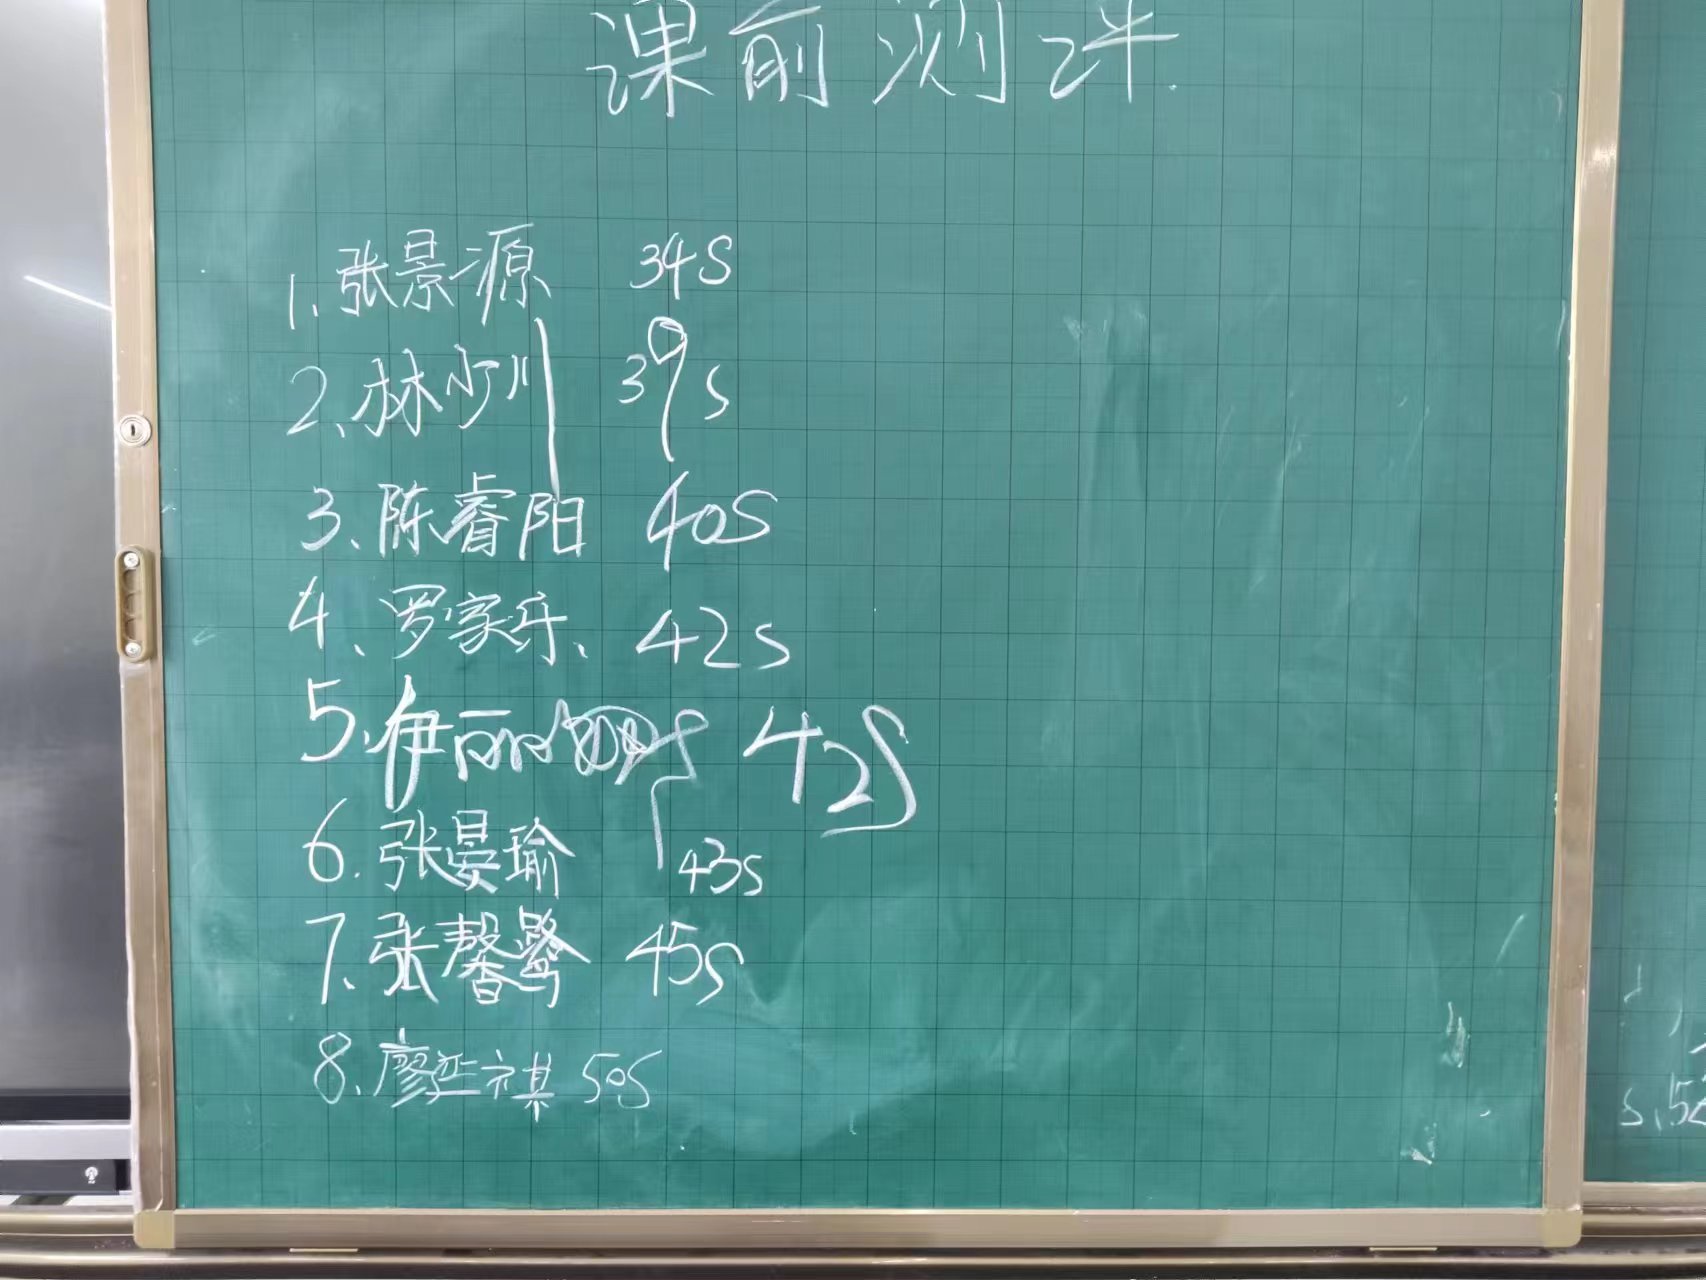 课前测评
1、张景源 34S
2、林少川 39s
3、陈睿阳 40S
4、罗家乐、 42s
5、伊丽 42S
6、张晏瑜 43s
7、张馨鹭 45s
8、廖延祺 50S